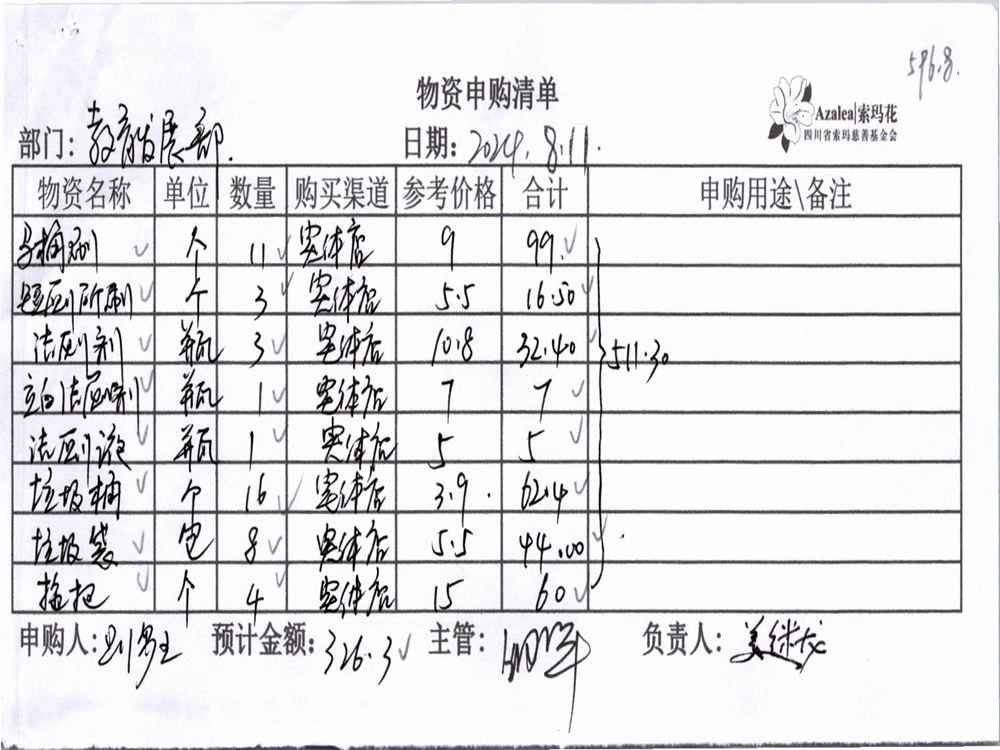 596.8.
物资申购清单
Azalea|索玛花
四川省索玛慈善基金会
部门: 教育发展部.
日期: 2024.8.11.
物资名称 单位 数量 购买渠道 参考价格 合计 申购用途\备注
马桶刷 个 11 实体店 9 99.
个 3 实体店 5.5 16.50
洁厕剂 瓶 3 实体店 10.8 32.40 511.30
立白洁厕 瓶 1 实体店 7 7
洁厕液 瓶 1 实体店 5 5
垃圾桶 个 16 实体店 3.9. 62.4
垃圾袋 包 8 实体店 5.5 44.00
拖把 个 4 实体店 15 60
申购人: 预计金额: 326.3 主管: 负责人: